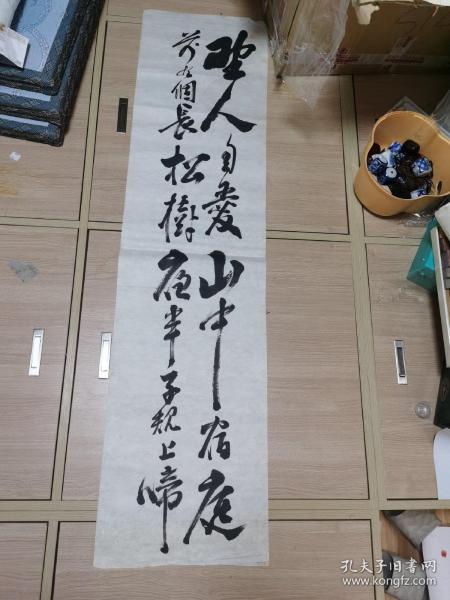 野人自愛山中宿庭
前有個長松樹夜半子規上啼
孔夫子旧书网
www.kongfz.com